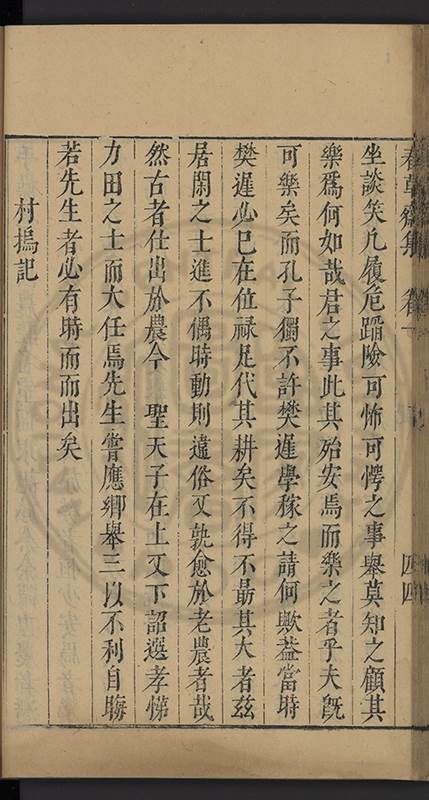 春草齋集 卷
四四
坐談笑凢履危蹈險可怖可愕之事舉莫知之顧其
樂爲何如哉君之事此其殆安焉而樂之者乎夫旣
可樂矣而孔子獨不許樊遲學稼之請何歟葢當時
樊遲必巳在位祿足代其耕矣不得不勗其大者玆
居閑之士進不偶時動則違俗又孰愈於老農者哉
然古者仕出於農今 聖天子在上又下詔選孝悌
力田之士而大任焉先生嘗應鄉舉三以不利自晦
若先生者必有時而而出矣
村塢記